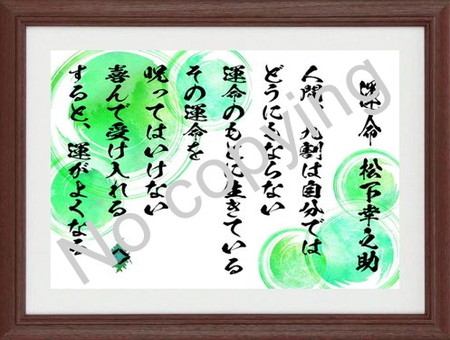 運命 松下幸之助
人間、九割は自分では
どうにもならない
運命のもとに生きている
その運命を
呪ってはいけない
喜んで受け入れる
すると、運がよくなる
No copying